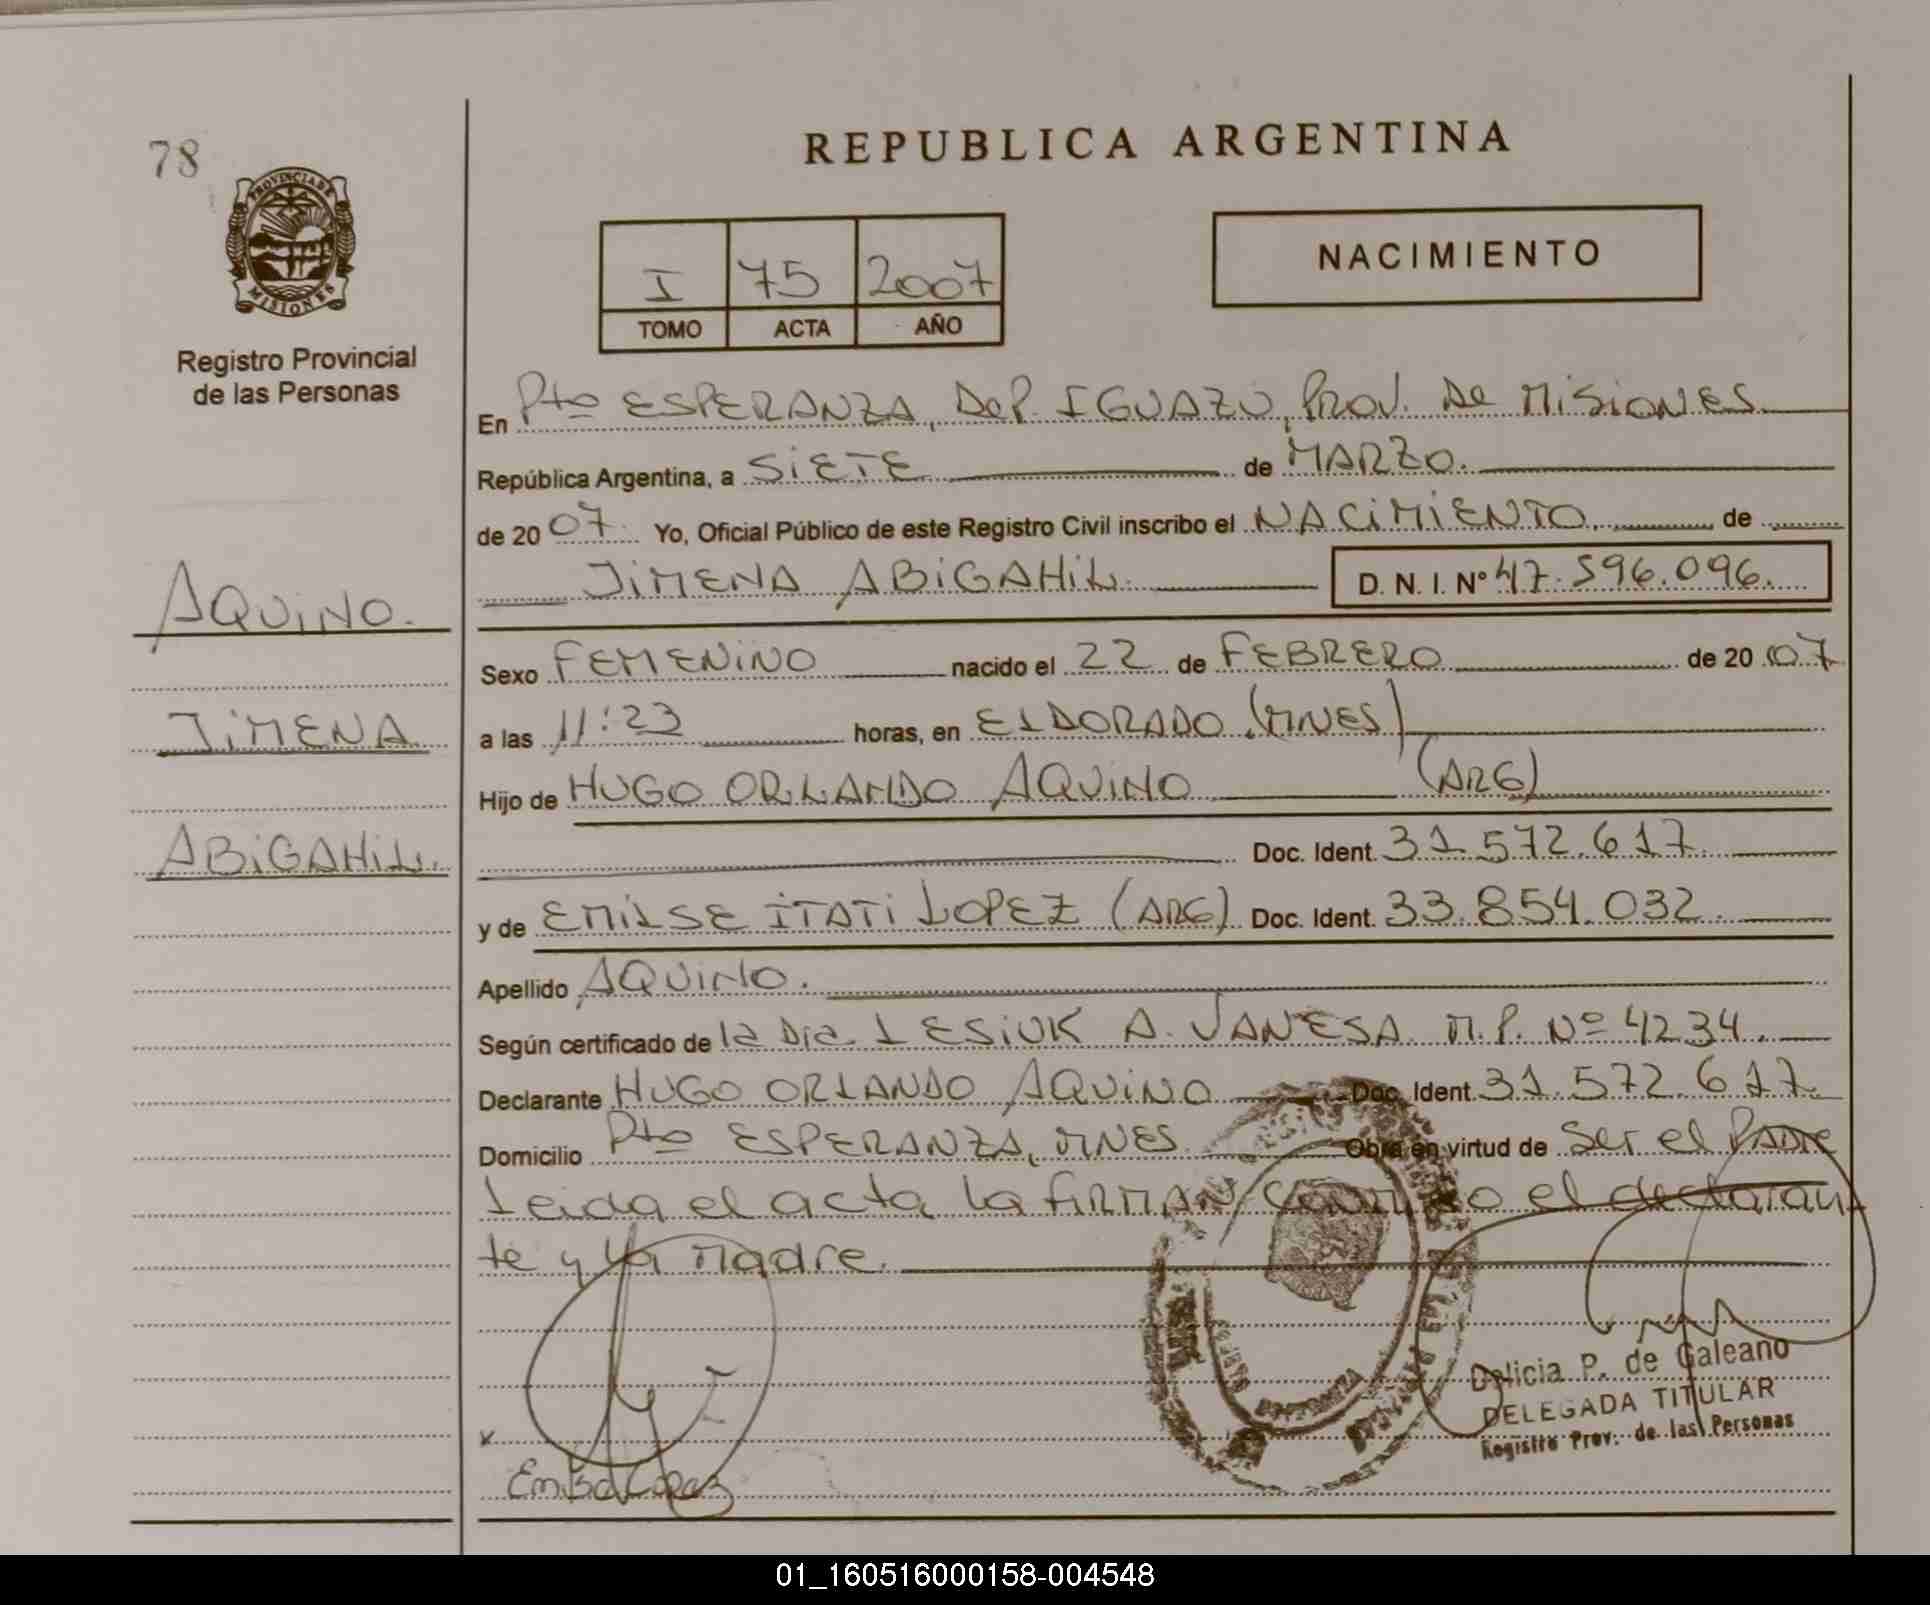 78
REPUBLICA ARGENTINA
PROVINCIA DE
MISIONES
Registro Provincial
de las Personas
I 75 2007
TOMO ACTA AÑO
NACIMIENTO
En Pto ESPERANZA, DeP. IGUAZÚ, PROV. De MISIONES
República Argentina, a SIETE de MARZO.
de 2007. Yo, Oficial Público de este Registro Civil inscribo el NACIMIENTO de
JIMENA ABIGAHIL. D. N. I. Nº 47.596.096.
AQUINO.
JIMENA
ABIGAHIL.
Sexo FEMENINO nacido el 22 de FEBRERO de 2007
a las 11:23 horas, en ELDORADO (MNES)
Hijo de HUGO ORLANDO AQUINO (ARG)
Doc. Ident. 31.572.617
y de EMILSE ITATI LOPEZ (ARG) Doc. Ident. 33.854.032.
Apellido AQUINO.
Según certificado de la Dra. LESIUK A. VANESA M.P. Nº 4234.
Declarante HUGO ORLANDO AQUINO Doc. Ident. 31.572.617.
Domicilio Pto ESPERANZA, MNES. Obra en virtud de Ser el PADRE
Leida el acta, la FIRMAN el declaran
te y la madre.
Delicia P. de Galeano
DELEGADA TITULAR
Registro Prov. de las Personas
Lopez
01_160516000158-004548